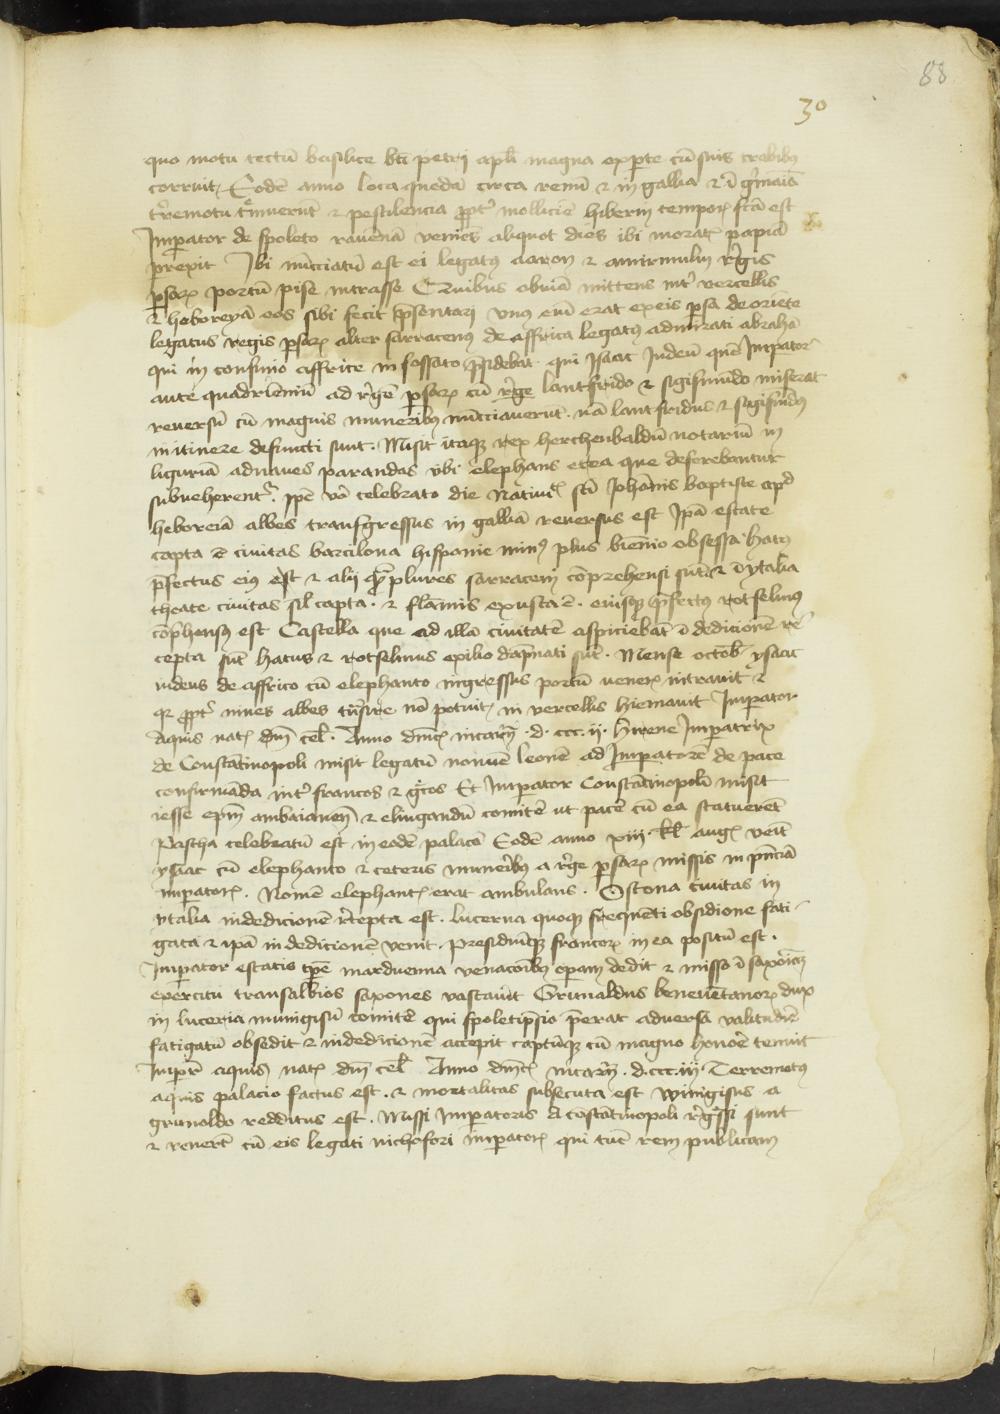 88
30
quo motu tectū basilice bti petri apli magna ex parte cū suis trabibus
corruit. Eodē anno loca quedā circa renū & in gallia & ī g̃mania
tr̃remotu t̃muerūt & pestilencia ppt' mollicie hiberni tempor' fcā est
Imperator de spoleto rauenā veniēs aliquot dies ibi morat' papiā
perrexit Ibi nūcciatū est ei legatos aaron & amirmulin rẽgis
persar' portū pise intrasse Quibus obuiā mittens int' vercellis
& heboreyā eos sibi fecit p̄sentari vnus eni erat ex eis persa de oriēte
legatus regis persar' alter sarracenus de affrica legatus admirati abrahā
qui in confinio affrice in fossato p̄sidebat qui Isaac Iudeū quē Imperator
ante quadrienniū ad rẽgē persar' cū rẽge lantfrido & sigismundo miserat
reuersū cū magnis muneribus nūcciauerūt. nā lantfridus & sigismūdus
in itinere defuncti sunt. Misit itaque rex herchenbaldū notariū in
liguriā ad naues parandas vbi elephans et ea que deferebantur
subueherent'. ipē vō celebrato die natiuit' sci Johānis baptiste apd
heboreiā albes transgressus in galliā reuersus est Ipā estate
capta ē ciuitas barcilona hispanie min' plus biennio obsessa. hatus
p̄fectus eius est & alii qp̄lures sarraceni cōprehensi sūt & ī ytalia
theate ciuitas sil' capta. & flāmis exusta ē. eiusque p̄fectus rotselmus
cōp̄hensus est Castella que ad illā ciuitatē aspiciebāt ī dedicionē re
cepta sūt hatus & rotselmus exilio dāpnati sūt. Mense octob' ysaac
iudeus de affrico cū elephanto ingressus portū vener' intrauit &
qr ppt' niues albes trāsire nō potuit, in vercellis hiemauit Imperator
Aquis nat' dni cel'. Anno dnice incarn' .d.ccc.ii. hirene Imperatrix
de Constātinopoli misit legatū nomiē leonē ad Imperatorē de pace
confirmāda int' francos & g̃cos Et Imperator Constātinopolī misit
iesse ep̄m ambaianēsem & elingandū comitē ut pacē cū ea statuerēt
Pascha celebratū est in eodē palacō Eodē anno xiii. kl' aug' venit
ysaac cū elephanto & ceteris muneribus a rẽge persar' missis in p̄nciā
imperatoris. Nomē elephant' erat ambulans. Ostona ciuitas in
ytalia in dedicionē recepta est. lucerna quoque frequēti obsidione fati-
gata & ipā in dedicionē venit. presidiūque francor' in ea positū est.
Imperator estatis tpe in arduenna venacōibus operam dedit & misso ī saxōiam
exercitu transalbios saxones vastauit Grimaldus beneuētanor' dux
in luceria munigisū comitē qui spoleti presio p̄erat aduersa valitudie
fatigatū obsedit & in dedicionē accepit captūque cū magno honore tenuit
Imper' aquis nat' dni cel'. Anno dnice incarn' .d.ccc.iii. Terremotus
aquis palacio factus est. & mortalitas subsecuta est winigisus a
grimoldo redditus est. Missi Imperatoris A costātinopoli rẽgssi sunt
& venerūt cū eis legati nichofori imperator' qui tūc rem publicam